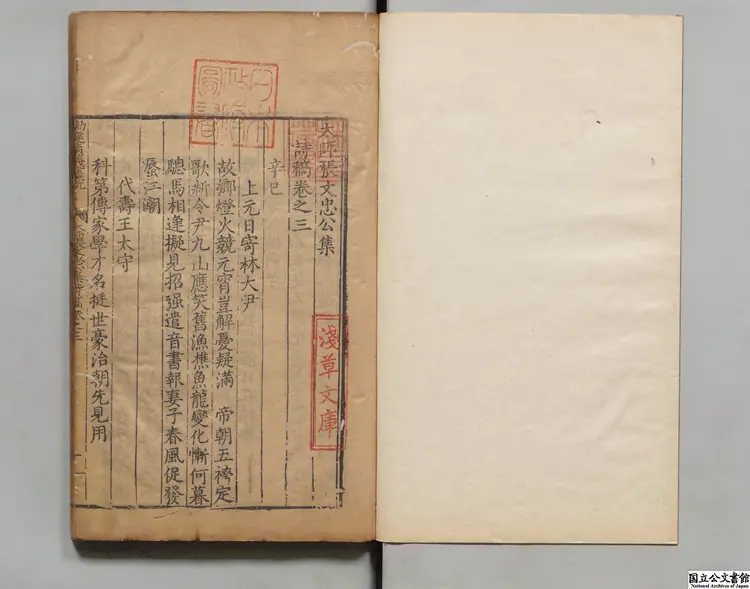 太師張文忠公集
詩稿卷之三
辛巳
上元日寄林大尹
故鄉燈火競元宵豈解憂疑滿　帝朝五袴定
歌新令尹九山應笑舊漁樵魚龍變化慚何暮
驄馬相逢擬見招强遣音書報妻子春風促發
蜃江潮
代壽王太守
科第傳家學才名挺世豪治朝先見用
日本
政府
圖書
淺草文庫
国立公文書館
National Archives of Japan